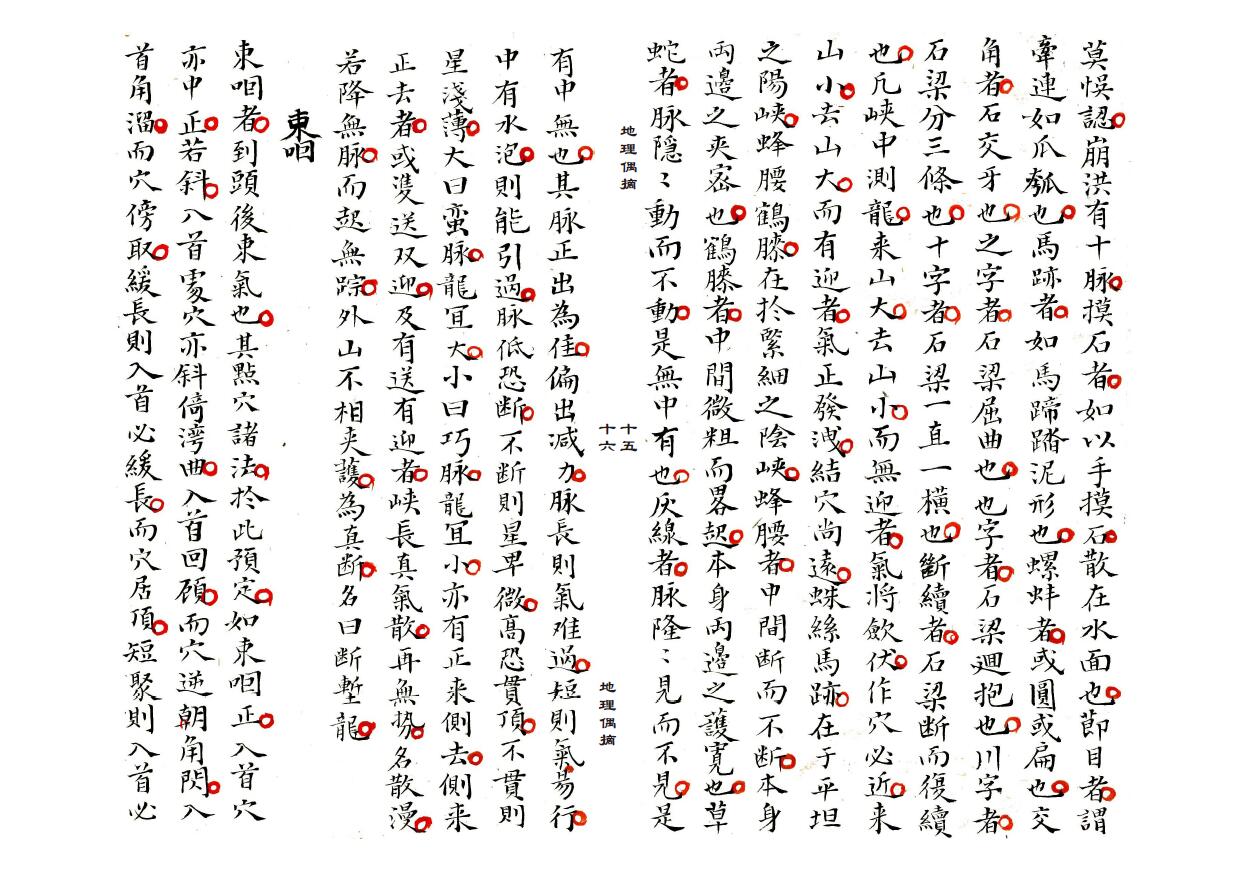 莫悮認崩洪有十脉摸石者如以手摸石散在水面也節目者謂
牽連如瓜瓠也馬跡者如馬蹄踏泥形也螺蚌者或圓或扁也交
角者石交牙也之字者石梁屈曲也也字者石梁廻抱也川字者
石梁分三條也十字者石梁一直一橫也斷續者石梁断而復續
也凣峡中測龍来山大去山小而無迎者氣将歛伏作穴必近来
山小去山大而有迎者氣正發洩結穴尚遠蛛絲馬跡在于平坦
之陽峡蜂腰鶴膝在扵緊細之陰峡蜂腰者中間断而不断本身
両邉之夾宻也鶴膝者中間微粗而畧起本身両邉之護寛也草
蛇者脉隠〻動而不動是無中有也灰線者脉隆〻見而不見是
地理偶摘
十五
十六
地理偶摘
有中無也其脉正出為佳偏出减力脉長則氣难過短則氣昜行
中有水泡則能引過脉低恐断不断則星卑微高恐貫頂不貫則
星淺薄大曰蛮脉龍冝大小曰巧脉龍冝小亦有正来側去側来
正去者或隻送双迎及有送有迎者峡長真氣散再無势名散漫
若降無脉而起無踪外山不相夹護為真断名曰断塹龍
束咽
束咽者到頭後束氣也其點穴諸法扵此預定如束咽正入首穴
亦中正若斜入首䨇穴亦斜倚湾曲入首回顧而穴逆朝角閃入
首角溜而穴傍取緩長則入首必緩長而穴居頂短聚則入首必